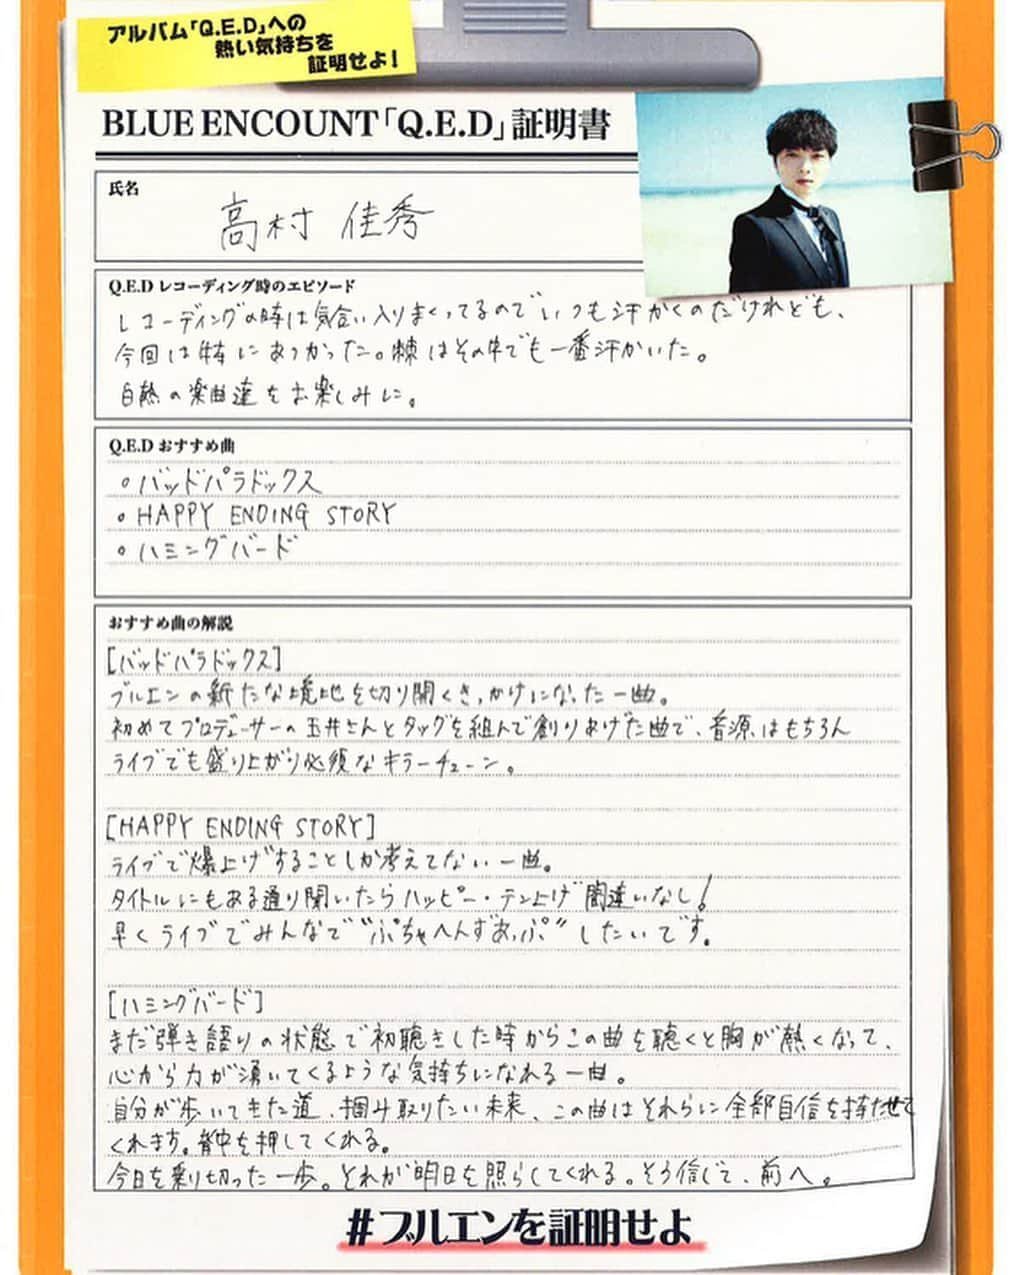 アルバム「Q.E.D」への
熱い気持ちを
証明せよ!
BLUE ENCOUNT「Q.E.D」証明書
氏名
高村 佳秀
Q.E.D レコーディング時のエピソード
レコーディングの時は気合い入りまくってるのでいつも汗かくのだけれども、
今回は特にあつかった。棘はその中でも一番汗かいた。
白熱の楽曲達をお楽しみに。
Q.E.D おすすめ曲
。バッドパラドックス
。HAPPY ENDING STORY
。ハミングバード
おすすめ曲の解説
[バッドパラドックス]
ブルエンの新たな境地を切り開くきっかけになった一曲。
初めてプロデューサーの玉井さんとタッグを組んで創りあげた曲で、音源はもちろん
ライブでも盛り上がり必須なキラーチューン。
[HAPPY ENDING STORY]
ライブで爆上げすることしか考えてない一曲。
タイトルにもある通り聞いたらハッピー・テン上げ間違いなし!
早くライブでみんなで"ぷちゃへんずあっぷ"したいです。
[ハミングバード]
まだ弾き語りの状態で初聴きした時からこの曲を聴くと胸が熱くなって、
心から力が湧いてくるような気持ちになれる一曲。
自分が歩いてきた道、掴み取りたい未来、この曲はそれらに全部自信を持たせて
くれます。背中を押してくれる。
今日を乗り切った一歩。それが明日を照らしてくれる。そう信じて、前へ。
#ブルエンを証明せよ